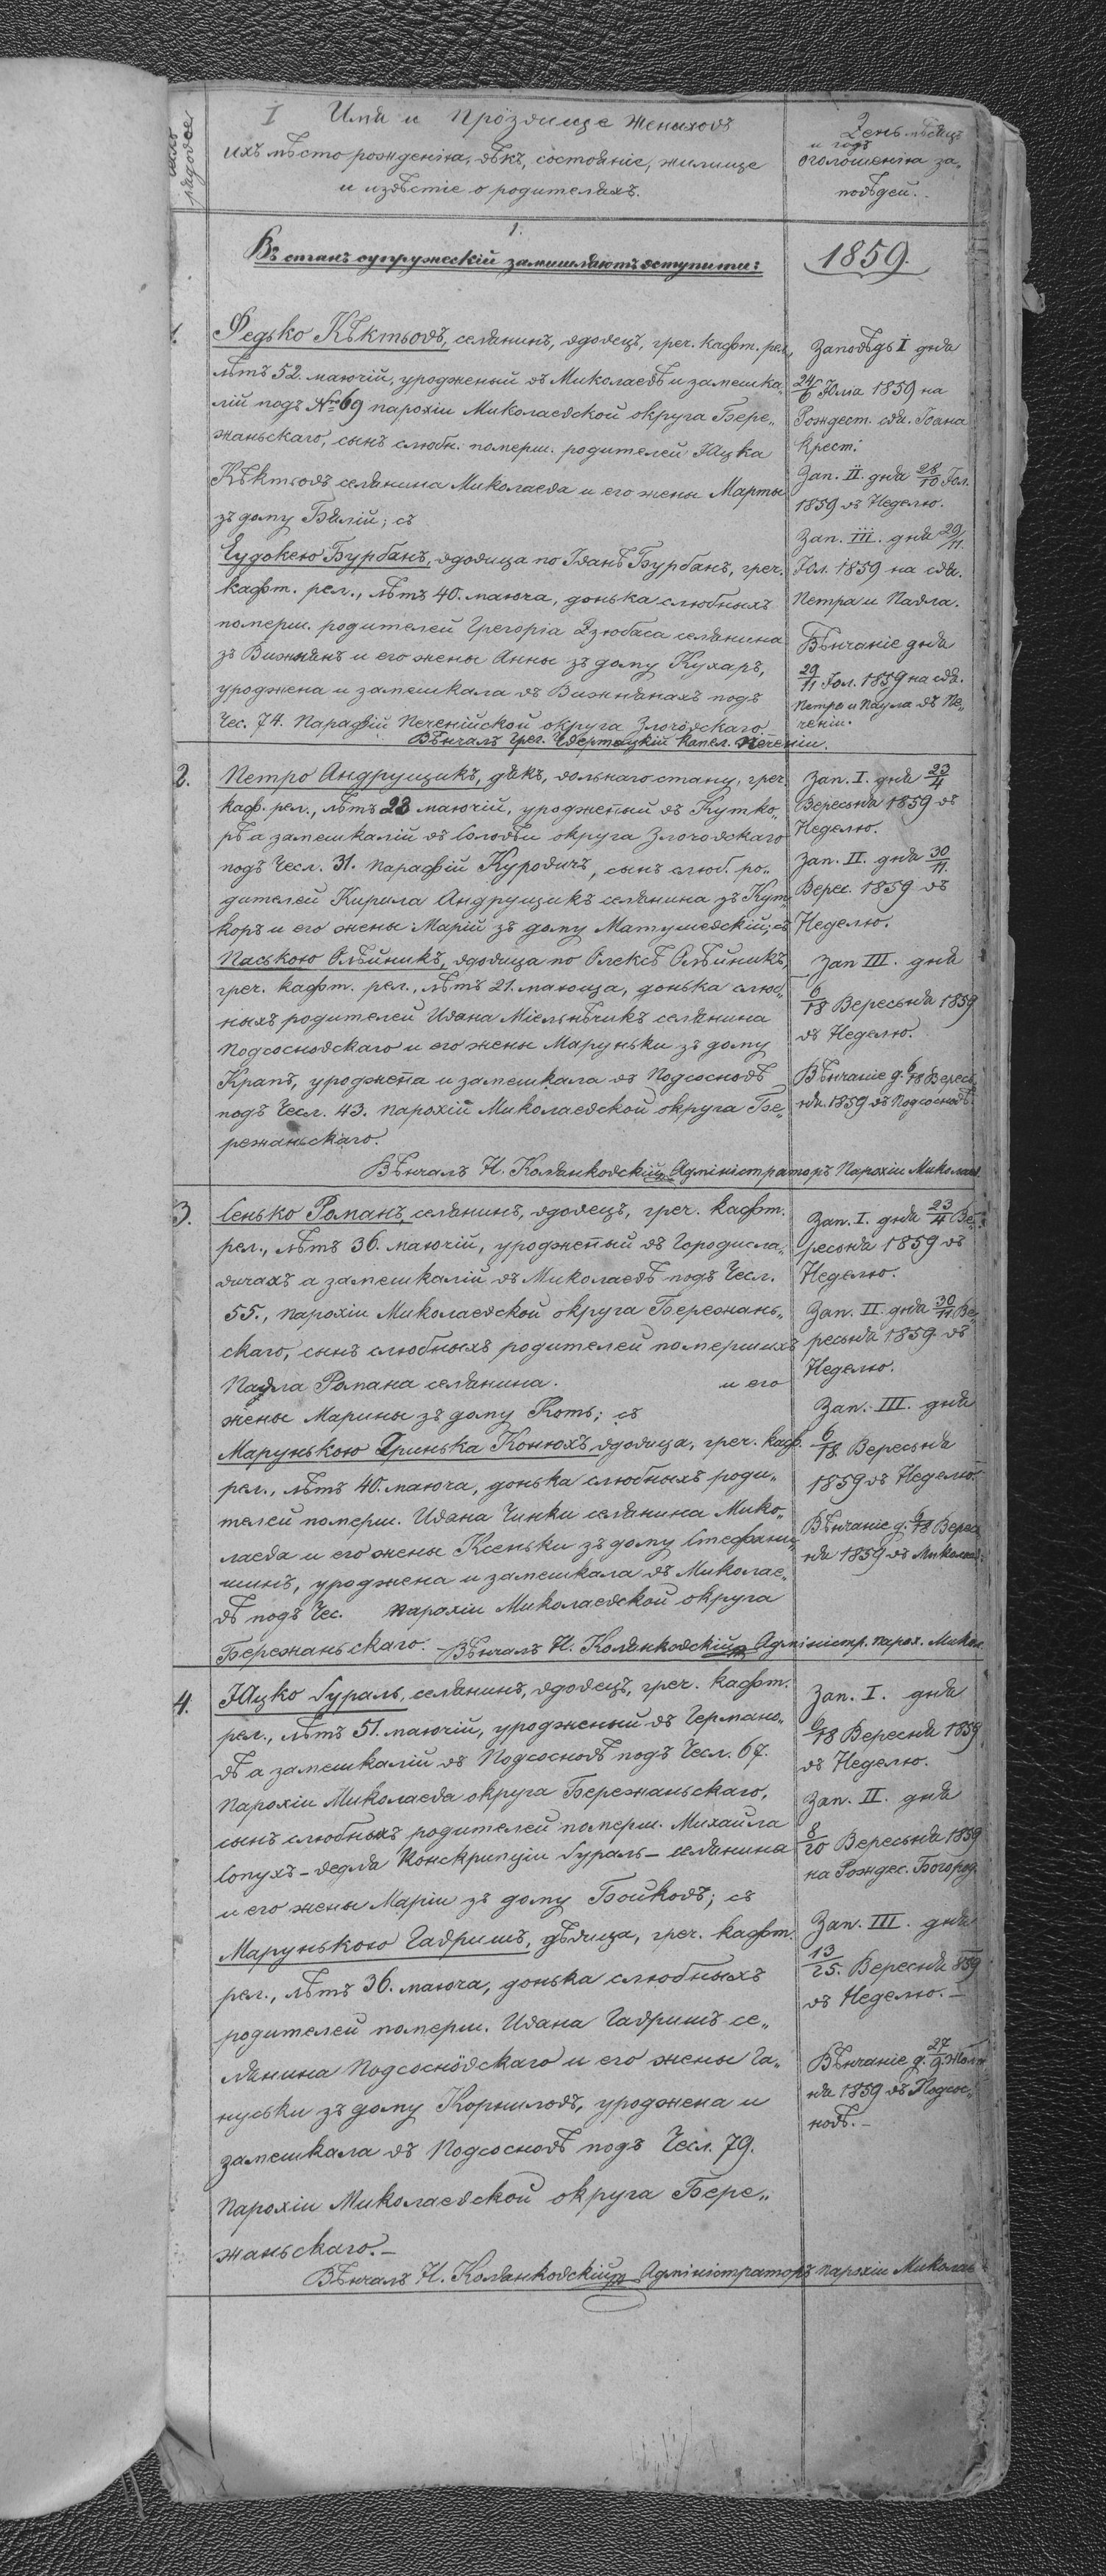 I Имя и Прôзвище Жениховъ
ихъ мѣсто рожденія, вѣкъ, состояніе, жилище
и извѣстіе о родителяхъ.
День мѣсяцъ
и годъ
оголошенія за„
повѣдей.
1.
Въ станъ супружескій замышляютъ вступити:
1859.
1.
Федько Кѣктьовъ, селянинъ, вдовецъ, греч. кафт. рел.,
лѣтъ 52. маючій, урожденый въ Миколаевѣ и замешка„
лій подъ Nro 69 парохіи Миколаевской округа Бере„
жаньскаго, сынъ слюбн. померш. родителей Яцка
Кѣктьовъ селянина Миколаева и его жены Марты
зъ дому Бѣлій; съ
Еудокею Бурбанъ, вдовица по Іванѣ Бурбанъ, греч.
кафт. рел., лѣтъ 40. маюча, донька слюбныхъ
померш. родителей Григорія Дзюбаса селянина
зъ Вижнянъ и его жены Анны зъ дому Кухаръ,
уроджена и замешкала въ Вижнянахъ подъ
Чес. 74. Парафій Печенійской округа Злочôвскаго.
Вѣнчалъ Грег. Четвертацкій капел. Печеніи.
Заповѣдь I дня
24/6 Юлія 1859 на
Рождест. свя. Іоана
Крест:
Зап. II. дня 28/10 Юл.
1859 въ Неделю.
Зап. III. дня 29/11.
Юл. 1859 на свя.
Петра и Павла.
Вѣнчаніе дня
29/11 Юл. 1859 на свя.
Петра и Паула въ Пе„
ченіи.
2.
Петро Андрущикъ, дякъ, вольнаго стану, греч.
каф. рел., лѣтъ 28 маючій, уродженый въ Кутко„
рѣ а замешкалій въ Соловѣи округа Злочовскаго
подъ Чесл. 31. парафій Куровичъ, сынъ слюб. ро„
дителей Кирила Андрущикъ селянина зъ Кут„
коръ и его жены Марій зъ дому Матушевскій; съ
Паською Олѣйникъ, вдовица по Олексѣ Олѣйникъ,
греч. кафт. рел., лѣтъ 21. мающа, донька слюб„
ныхъ родителей Ивана Мѣельнѣчикъ селянина
Подсосновскаго и его жены Маруньки зъ дому
Крапъ, уроджена и замешкала въ Подсосновѣ
подъ Чесл. 43. парохій Миколаевской округа Бе„
режаньскаго.
Вѣнчалъ Н. Колянковскій Адміністраторъ Парохіи Миколаев
Зап. I. дня 23/4
Вересьня 1859 въ
Неделю.
Зап. II. дня 30/11.
Верес. 1859 въ
Неделю.
Зап III. дня
6/18 Вересьня 1859
въ Неделю.
Вѣнчаніе д. 6/18 Вересь„
ня. 1859 въ Подсосновѣ.
3.
Сенько Романъ, селянинъ, вдовецъ, греч. кафт.
рел., лѣтъ 36. маючій, уродженый въ Городисла„
вичахъ а замешкалій въ Миколаевѣ подъ Чесл.
55., парохіи Миколаевской округа Бережань„
скаго, сынъ слюбныхъ родителей помершихъ
Павла Романа селянина. и его
жены Марины зъ дому Котъ; съ
Марунькою Гринька Конюхъ, вдовица, греч. каф.
рел., лѣтъ 40. маюча, донька слюбныхъ роди„
телей померш. Ивана Чинки селянина Мико„
лаева и его жены Ксеньки зъ дому Стефани„
шинъ, уроджена и замешкала въ Миколае„
вѣ подъ Чес. парохіи Миколаевской округа
Бережаньскаго. Вѣнчалъ Н. Колянковскій Адміністр. парох. Микол.
Зап. I. дня 23/4 Ве„
ресьня 1859 въ
Неделю.
Зап. II. дня 30/11 Ве„
ресьня 1859 въ
Неделю.
Зап. III. дня
6/18 Вересьня
1859 въ Неделю.
Вѣнчаніе д. 6/18 Верес
ня 1859 въ Миколаев.
4.
Яцко Гураль, селянинъ, вдовецъ, греч. кафт.
рел., лѣтъ 51. маючій, уродженый въ Германо„
вѣ а замешкалій въ Подсосновѣ подъ Чесл. 67.
Парохіи Миколаева округа Бережаньскаго,
сынъ слюбныхъ родителей померш. Михайла
Сопухъ – ведля Конскрипціи Гураль – селянина
и его жены Маріи зъ дому Бойковъ; съ
Марунькою Гавришъ, дѣвица, греч. кафт.
рел., лѣтъ 36. маюча, донька слюбныхъ
родителей померш. Ивана Гавришъ се„
лянина Подсоснôвскаго и его жены Га„
нуськи зъ дому Корниловъ, уроджена и
замешкала въ Подсосновѣ подъ Чесл. 79.
Парохіи Миколаевской округа Бере„
жаньскаго. –
Вѣнчалъ Н. Колянковскій Адміністраторъ парохіи Миколаев
Зап. I. дня
6/18 Вересня 1859.
въ Неделю.
Зап. II. дня
8/20 Вересьня 1859
на Рождес. Богород.
Зап. III. дня
13/25. Вересня 859
въ Неделю. –
Вѣнчаніе д. 27/9 Жолт
ня 1859 въ Подсос„
новѣ. –